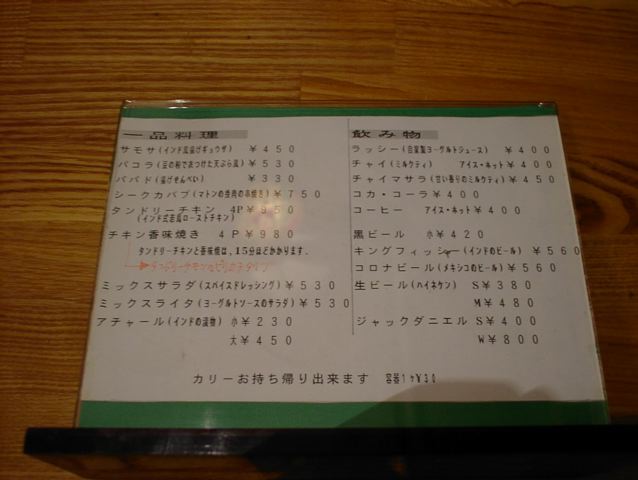 一品料理
サモサ(インド風揚げギョウザ) ￥450
パコラ(豆の粉でまつけた天ぷら風) ￥530
パパド(揚げせんべい) ￥330
シークカバブ(マトンの挽肉の串焼き) ￥750
タンドリーチキン 4P ￥950
(インド式若鳥ローストチキン)
チキン香味焼き 4P ￥980
タンドリーチキンと香味焼は、15分ほどかかります。
ミックスサラダ(スパイスドレッシング) ￥530
ミックスライタ(ヨーグルトソースのサラダ) ￥530
アチャール(インドの漬物) 小￥230
大￥450
飲み物
ラッシー(自家製ヨーグルトジュース) ￥400
チャイ(ミルクティ) アイス・ホット￥400
チャイマサラ(甘い香りのミルクティ) ￥450
コカ・コーラ￥400
コーヒー アイス・ホット￥400
黒ビール 小￥420
キングフィッシャー(インドのビール) ￥560
コロナビール(メキシコのビール) ￥560
生ビール(ハイネケン) S￥380
M￥480
ジャックダニエル S￥400
W￥800
カリーお持ち帰り出来ます 容器1ヶ￥30